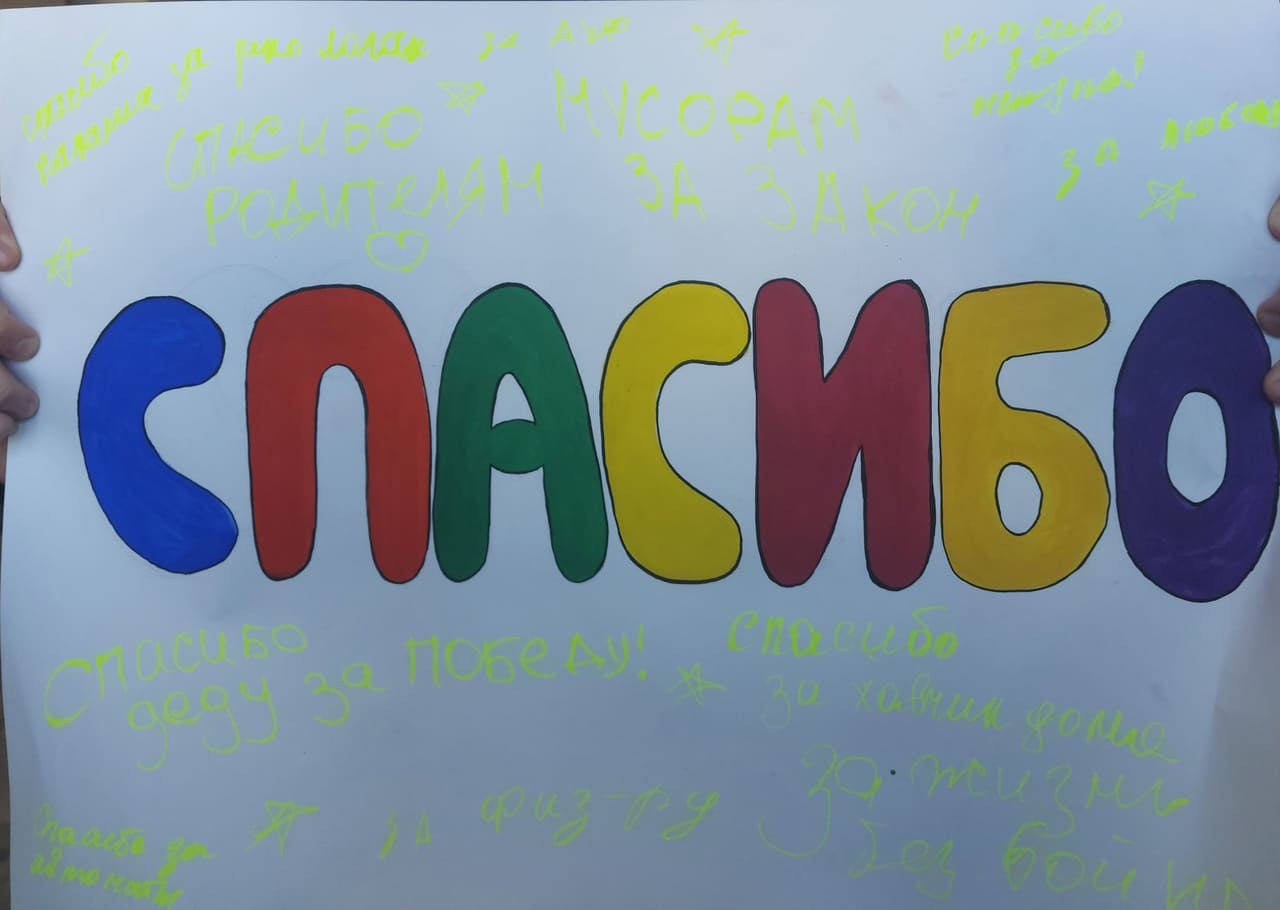 спасибо
за
за
спасибо
за
жизнь!
СПАСИБО
РОДИТЕЛЯМ
МУСОРАМ
ЗА ЗАКОН
ЗА любовь
СПАСИБО
Спасибо
деду за ПОБЕДУ!
Спасибо
за хавчик дома
за жизнь
без войны
за физ-ру
Спасибо за
автоматы